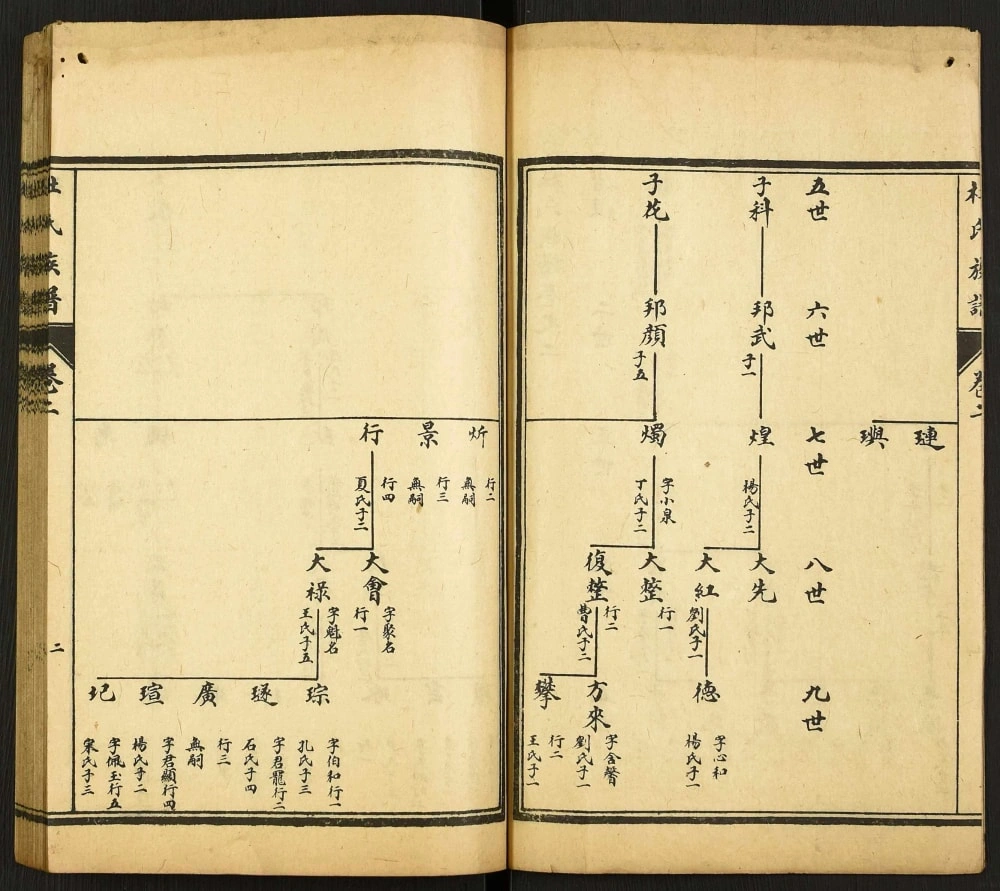 杜氏族譜
卷二
璉
璵
五世
六世
七世
八世
九世
子科
邦武
子一
煌
楊氏子二
大先
大紅
劉氏子一
德
字心和
楊氏子一
子花
邦顏
子五
燭
字小泉
丁氏子二
大整
行一
復整
行二
曹氏子二
方來
字含馨
劉氏子一
攀
行二
王氏子一
炘
行二
無嗣
景
行三
無嗣
行
行四
夏氏子二
大會
字聚名
行一
大祿
字魁名
王氏子五
琮
字伯和行一
孔氏子三
璲
字君寵行二
石氏子四
廣
行三
無嗣
瑄
字君顯行四
楊氏子二
圮
字佩玉行五
宋氏子三
杜氏族譜
卷二
二